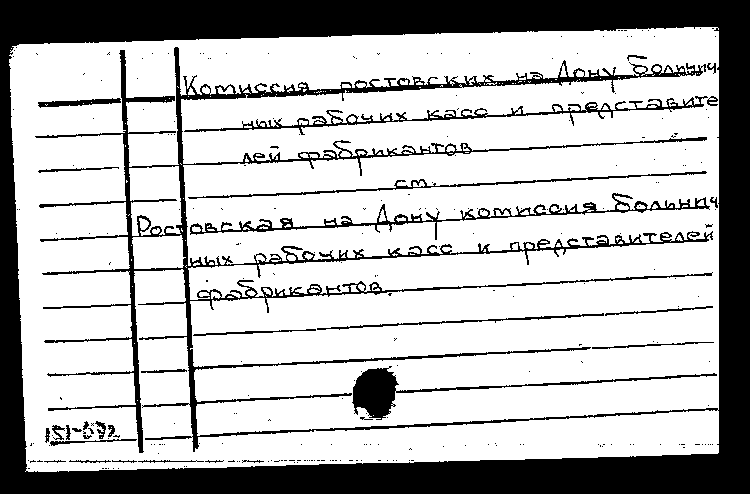 Комиссия ростовских на Дону больнич
ных рабочих касс и представите
лей фабрикантов
см.
Ростовская на Дону комиссия больнич
ных рабочих касс и представителей
фабрикантов.